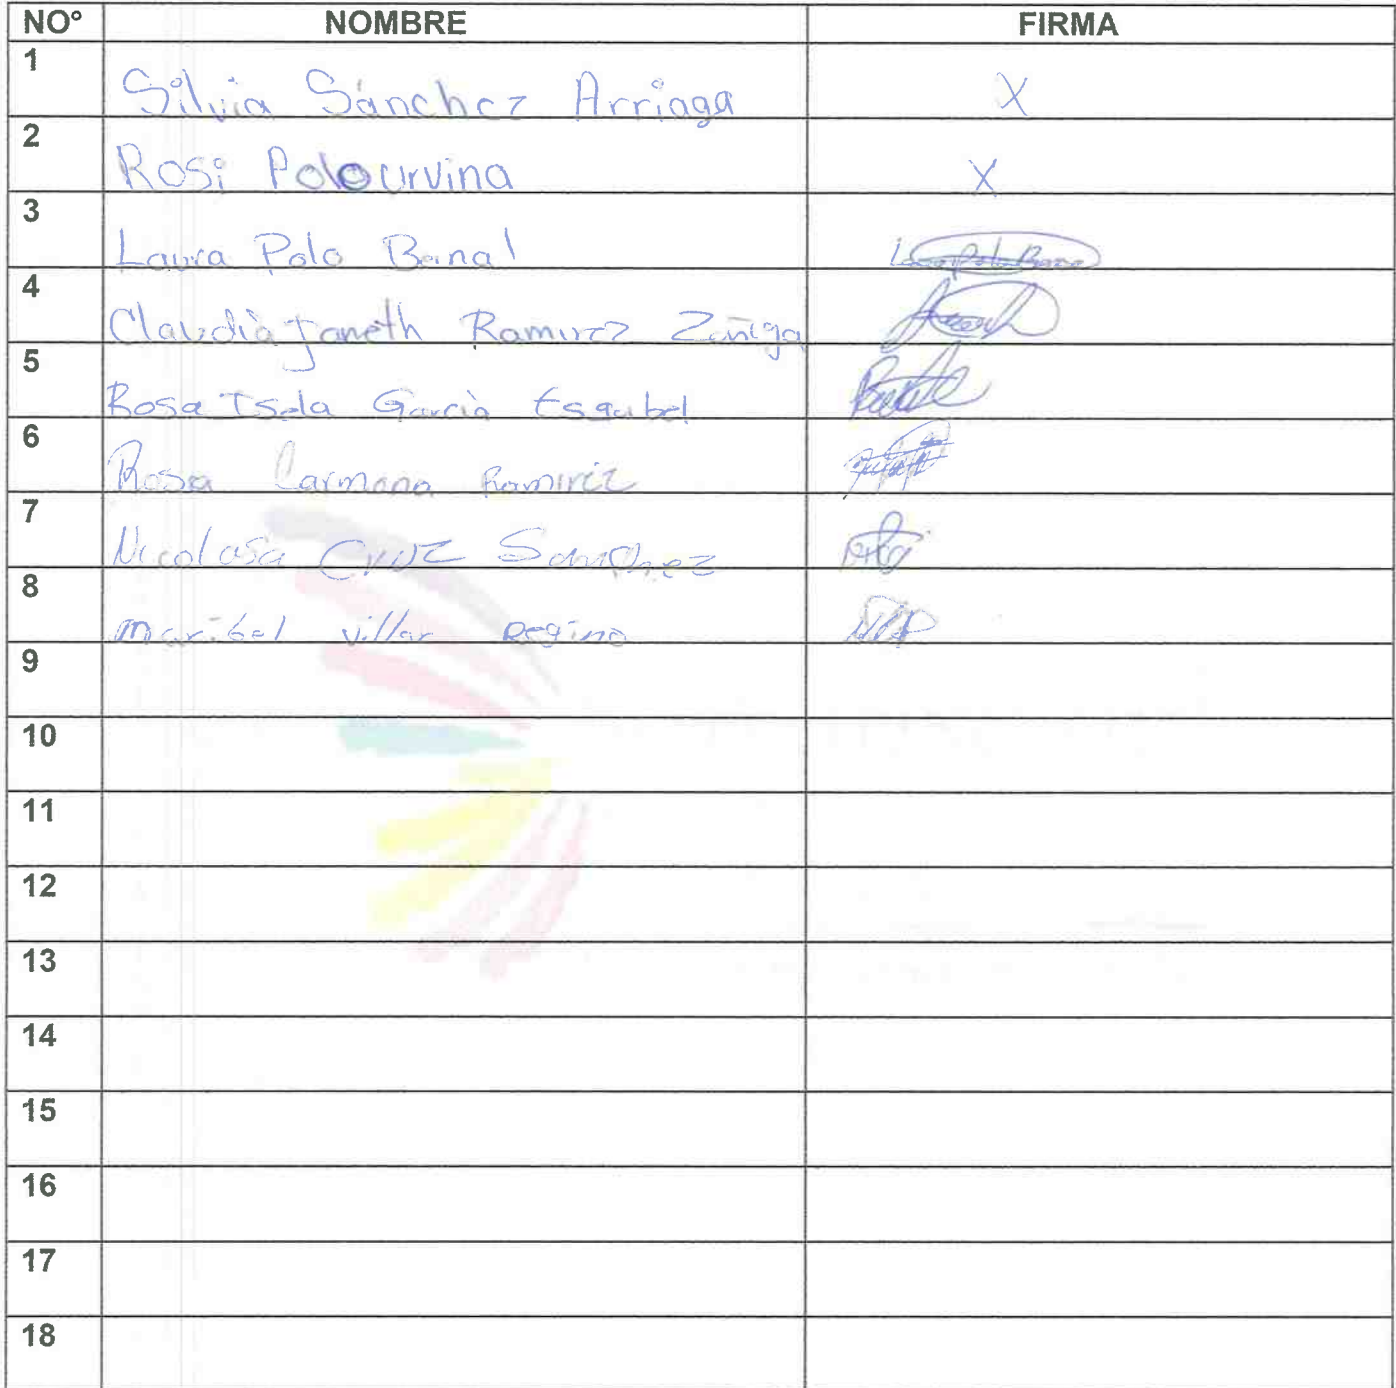 NO° NOMBRE FIRMA
1 Silvia Sánchez Arriaga X
2 Rosi Polo urvina X
3 Laura Polo Banal Laura Polo Banal
4 Claudia Janeth Ramirez Zuñiga
5 Rosa Isela Garcia Esquibel
6 Rosa Carmona Ramirez
7 Nicolasa Cruz Sanchez
8 maribel villar Regino
9
10
11
12
13
14
15
16
17
18